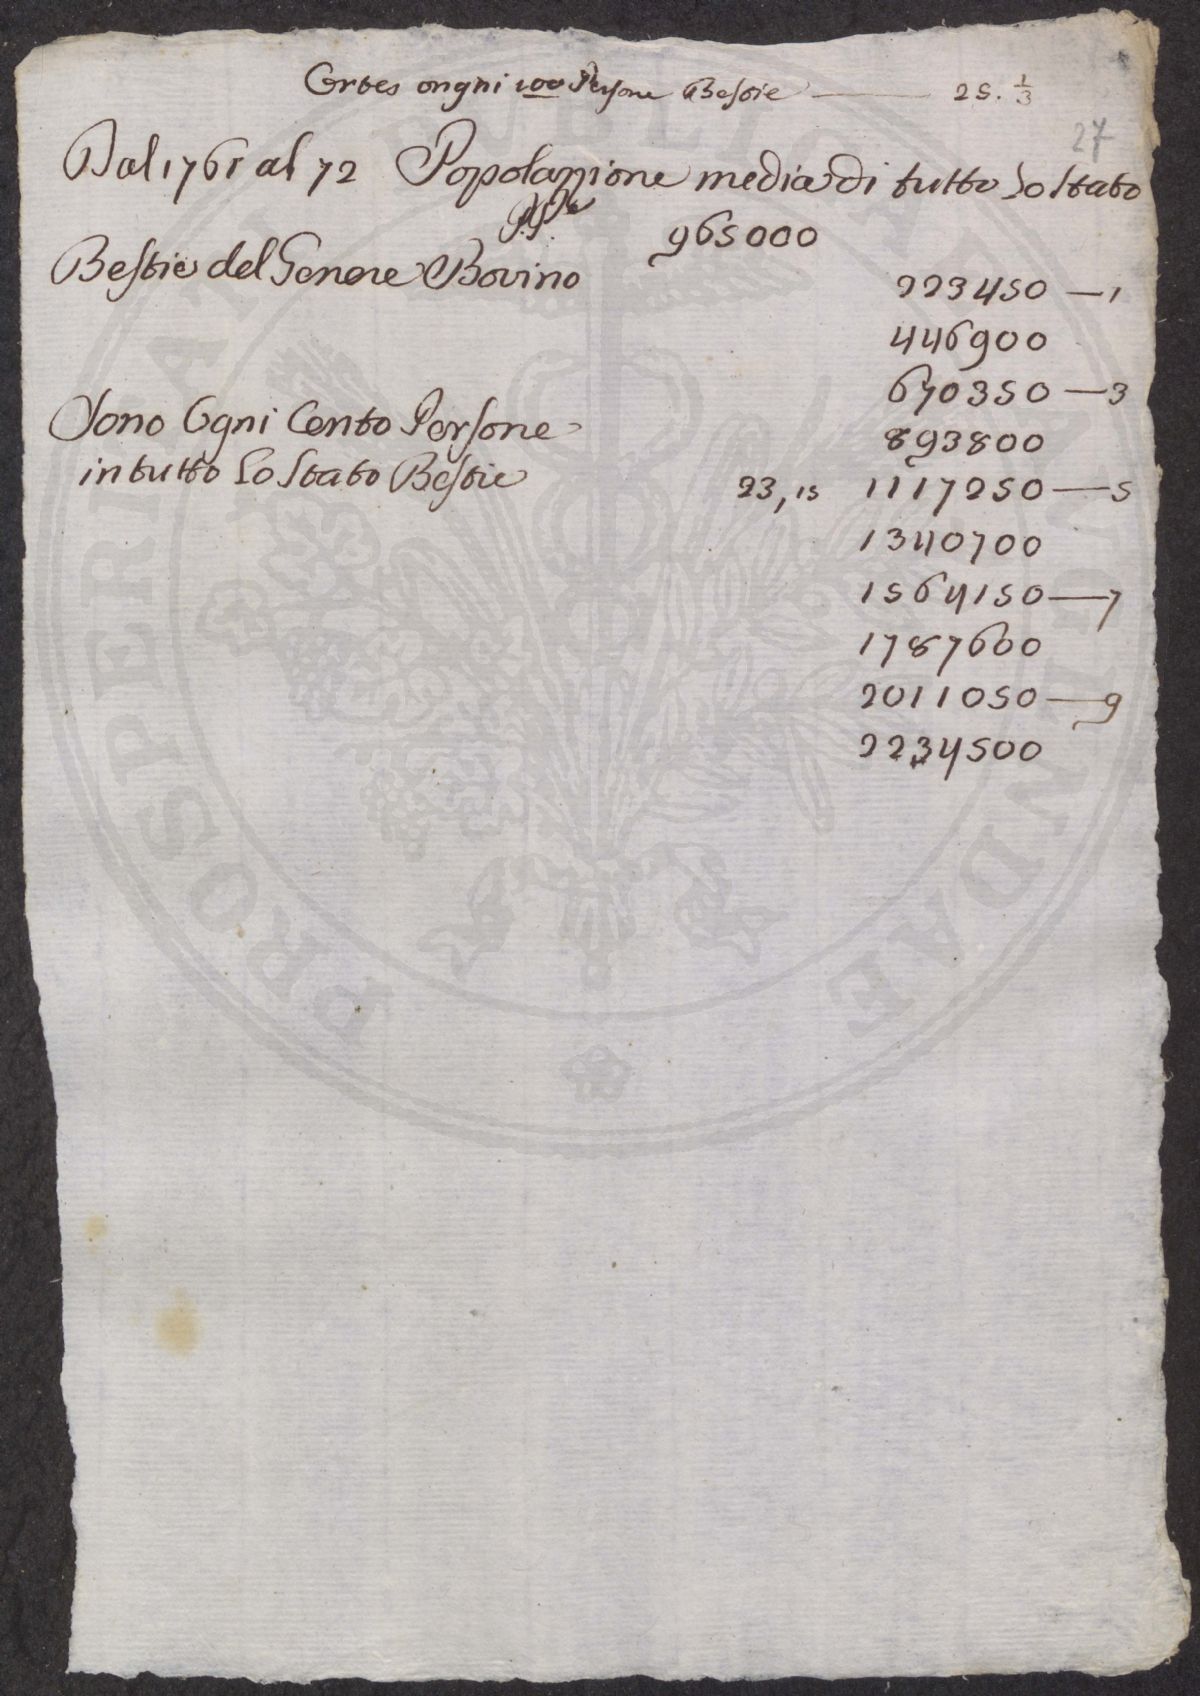 Cortes ongni 100 Persone Bestie — 25. 1/3
27
Dal 1761 al 72 Popolazzione media di tutto Lo Stato
965000
Bestie del Genere Bovino
223450 — 1
446900
670350 — 3
Sono Ogni Cento Persone
893800
in tutto Lo Stato Bestie 23,15 1117250 — 5
1340700
1564150 — 7
1787600
2011050 — 9
2234500
PROSPERITATI PUBLICAE AUGENDAE